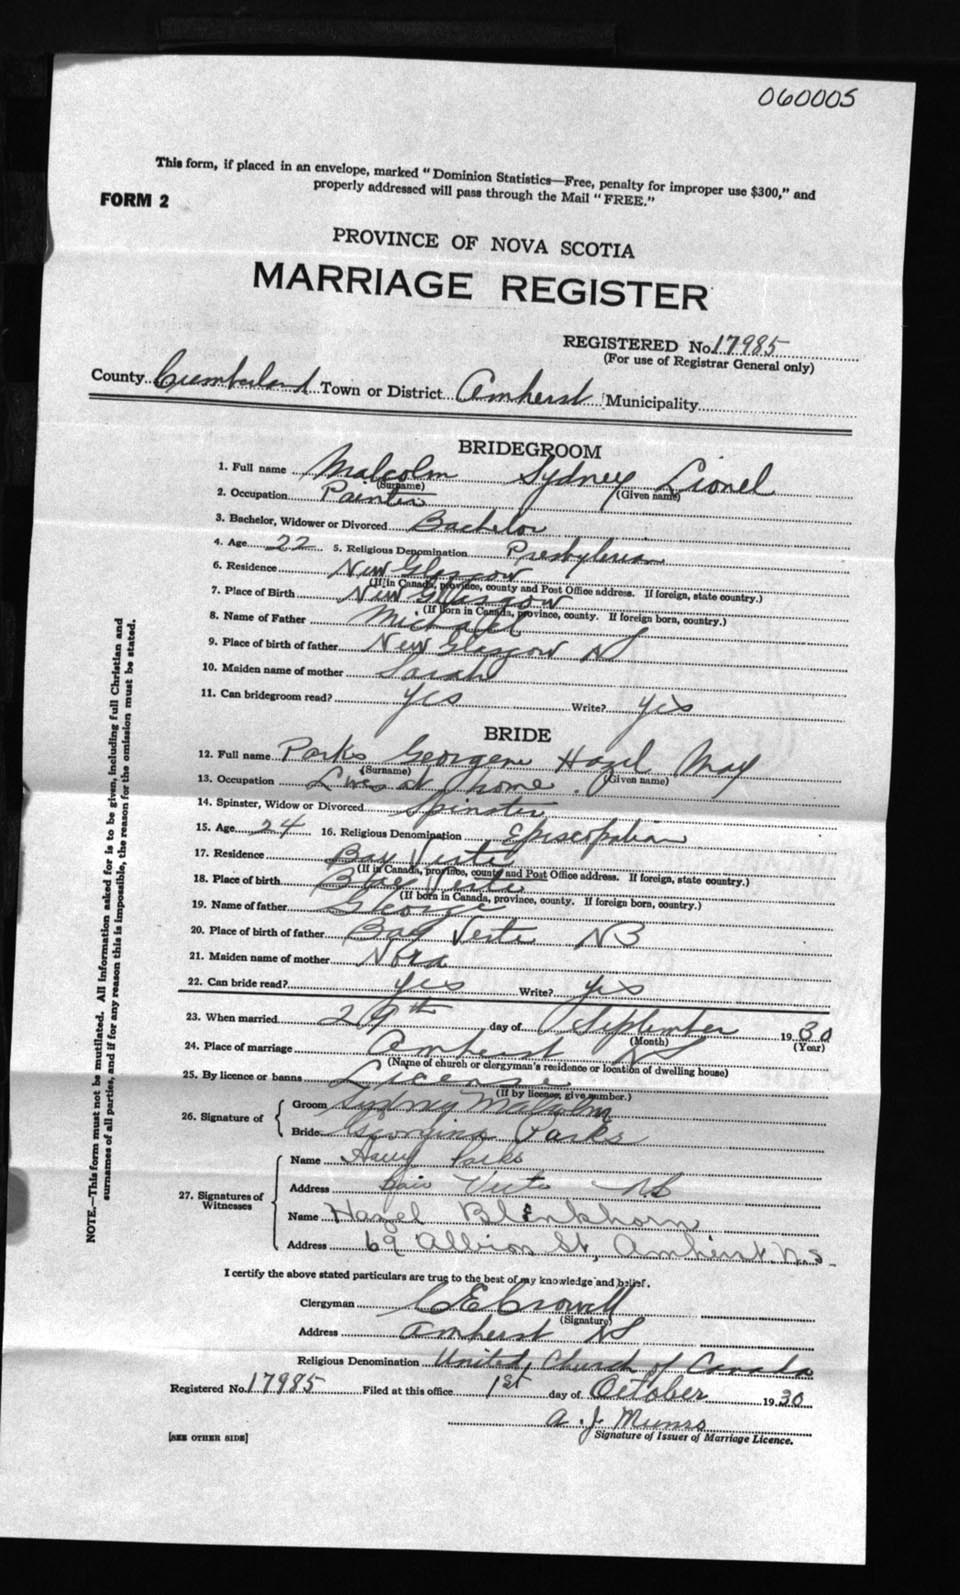 060005
This form, if placed in an envelope, marked "Dominion Statistics—Free, penalty for improper use $300," and
properly addressed will pass through the Mail "FREE."
FORM 2
PROVINCE OF NOVA SCOTIA
MARRIAGE REGISTER
REGISTERED No. 17985
(For use of Registrar General only)
County Cumberland Town or District Amherst Municipality
BRIDEGROOM
1. Full name Malcolm Sydney Lionel
(Surname) (Given name)
2. Occupation Painter
3. Bachelor, Widower or Divorced Bachelor
4. Age 22 5. Religious Denomination Presbyterian
6. Residence New Glasgow
(If in Canada, province, county and Post Office address. If foreign, state country.)
7. Place of Birth New Glasgow
(If born in Canada, province, county. If foreign born, country.)
8. Name of Father Michael
9. Place of birth of father New Glasgow NS
10. Maiden name of mother Sarah
11. Can bridegroom read? yes Write? yes
BRIDE
12. Full name Parks Georgene Hazel May
(Surname) (Given name)
13. Occupation Lives at home.
14. Spinster, Widow or Divorced Spinster
15. Age 24 16. Religious Denomination Episcopalian
17. Residence Bay Verte
(If in Canada, province, county and Post Office address. If foreign, state country.)
18. Place of birth Bay Verte
(If born in Canada, province, county. If foreign born, country.)
19. Name of father George
20. Place of birth of father Bay Verte NB
21. Maiden name of mother Nora
22. Can bride read? yes Write? yes
23. When married 29th day of September 1930
(Month) (Year)
24. Place of marriage Amherst NS
(Name of church or clergyman's residence or location of dwelling house)
25. By licence or banns License
(If by licence, give number.)
26. Signature of Groom Sydney Malcolm
Bride Georgina Parks
27. Signatures of Witnesses
Name Harry Parks
Address Baie Verte NB
Name Hazel Blenkhorn
Address 69 Albion St, Amherst. N.S.
I certify the above stated particulars are true to the best of my knowledge and belief.
Clergyman C E Crowell
(Signature)
Address Amherst NS
Religious Denomination United Church of Canada
Registered No. 17985 Filed at this office 1st day of October 1930
A. J. Munro
[SEE OTHER SIDE] Signature of Issuer of Marriage Licence.
NOTE.—This form must not be mutilated. All information asked for is to be given, including full Christian and
surnames of all parties, and if for any reason this is impossible, the reason for the omission must be stated.